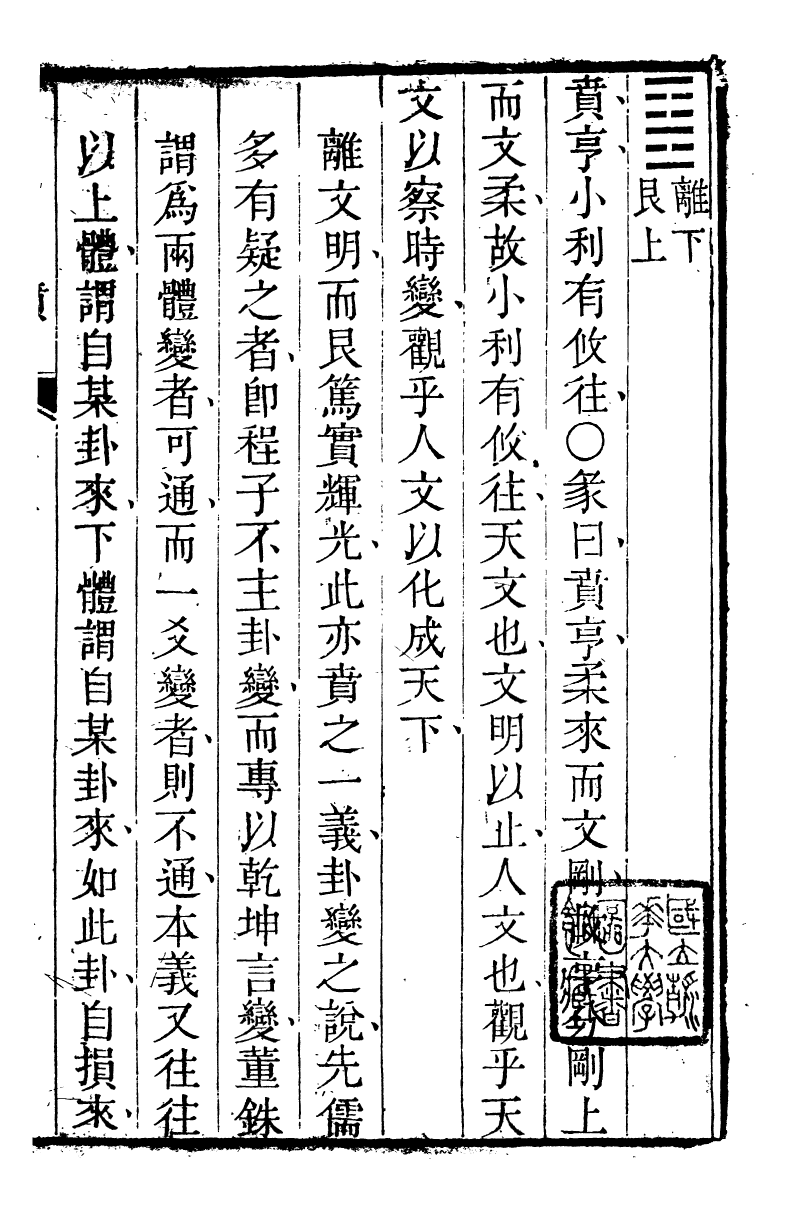 離下
艮上
賁亨小利有攸往○彖曰賁亨柔來而文剛故亨分剛上
而文柔故小利有攸往天文也文明以止人文也觀乎天
文以察時變觀乎人文以化成天下
離文明而艮篤實輝光此亦賁之一義卦變之說先儒
多有疑之者卽程子不主卦變而專以乾坤言變董銖
謂爲兩體變者可通而一爻變者則不通本義又往往
以上體謂自某卦來下體謂自某卦來如此卦自損來